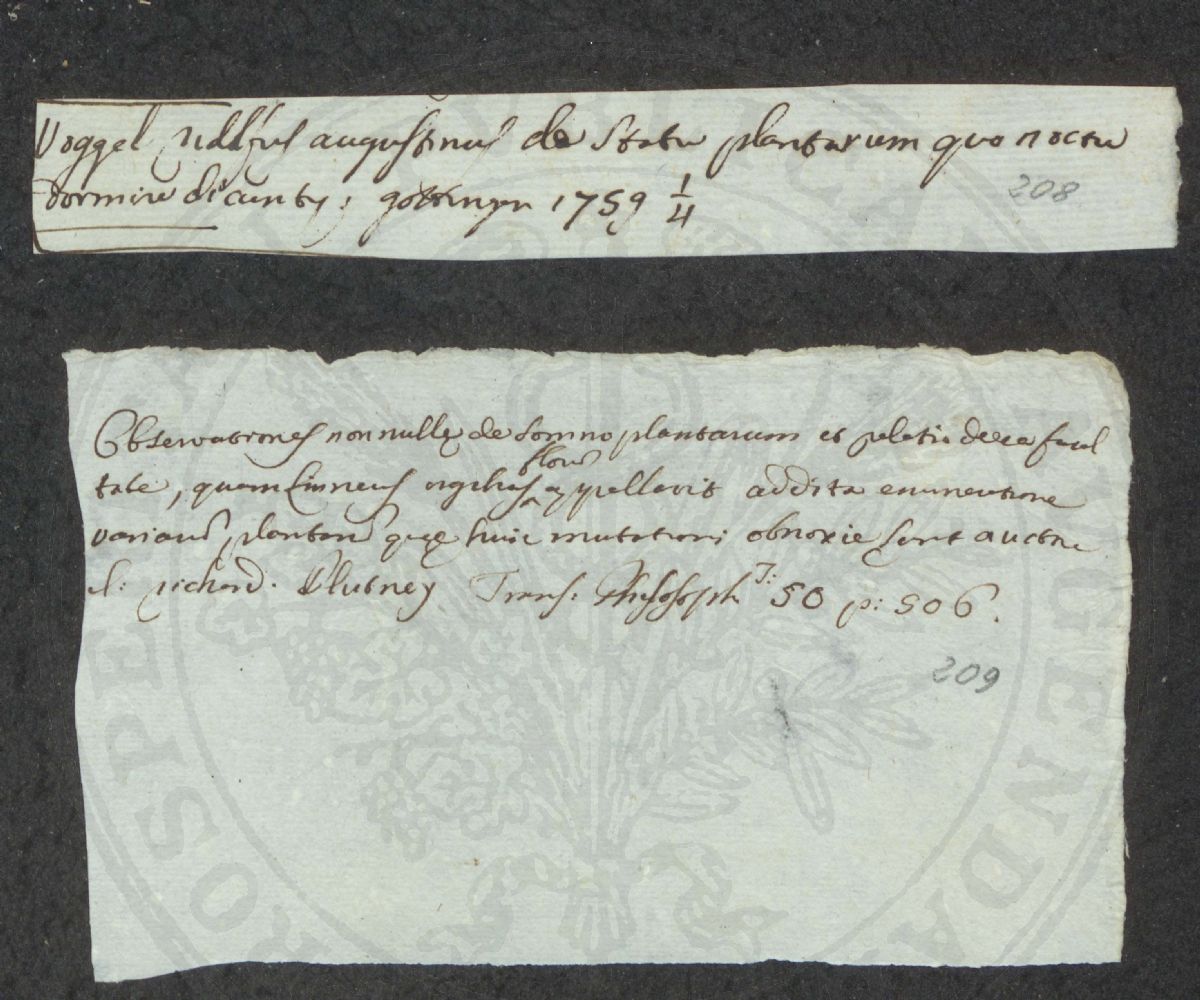 Voggel Rudlfus augustinus de Statu plantarum quo noctu
dormire dicuntʒ; gottingn 1759 1/4
208
Observationes non nullę de somno plantarum et de ea facul
tate, quam Linneus vigilias florū appellavit addita enumeratione
variarū plantarū quę huic mutationi obnoxie sunt auctore
d: richard: Pluteney Trans: Philosoph T: 50 p: 506.
209